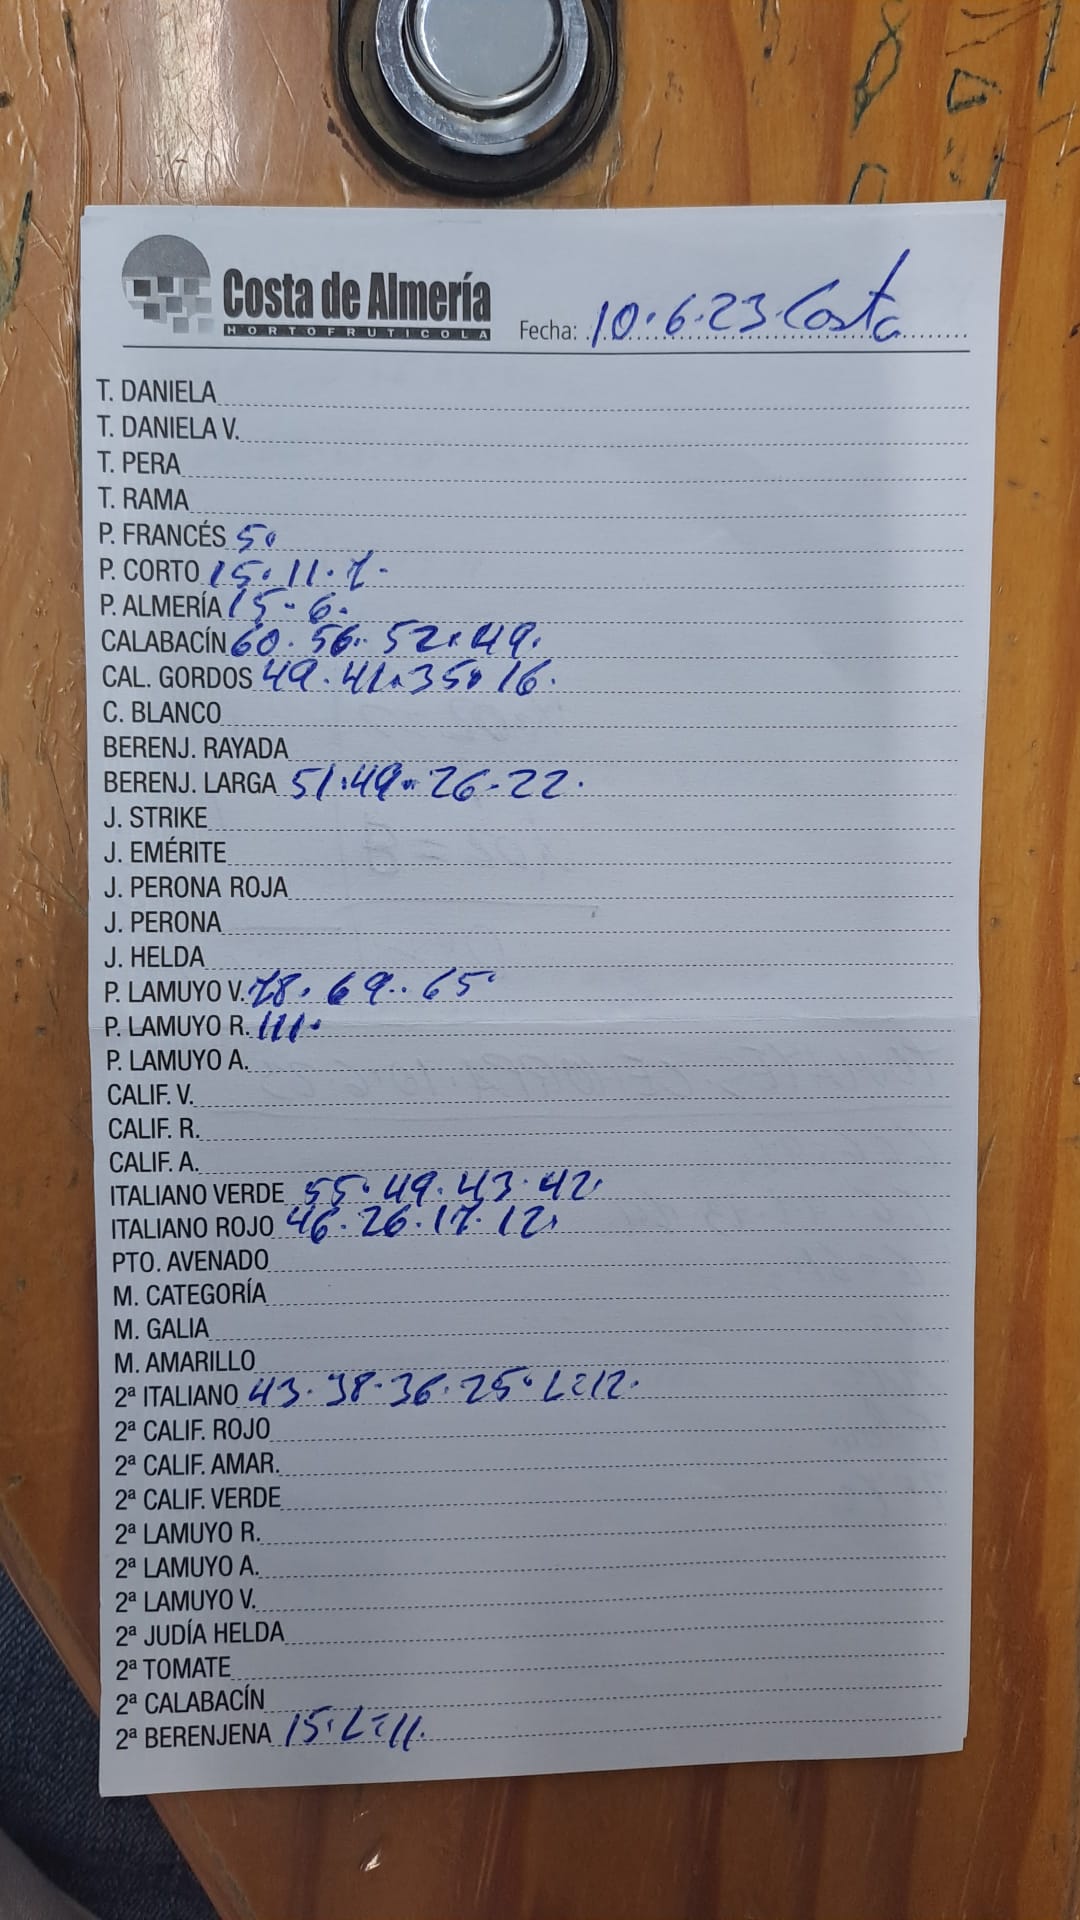 Costa de Almería
HORTOFRUTICOLA
Fecha: 10.6.23. Costa
T. DANIELA
T. DANIELA V.
T. PERA
T. RAMA
P. FRANCÉS 5.
P. CORTO 15. 11. 7.
P. ALMERÍA 15. 6.
CALABACÍN 60. 56. 52. 49.
CAL. GORDOS 49. 41. 35. 16.
C. BLANCO
BERENJ. RAYADA
BERENJ. LARGA 51. 49. 26. 22.
J. STRIKE
J. EMÉRITE
J. PERONA ROJA
J. PERONA
J. HELDA
P. LAMUYO V. 78. 69. 65.
P. LAMUYO R. 111.
P. LAMUYO A.
CALIF. V.
CALIF. R.
CALIF. A.
ITALIANO VERDE 55. 49. 43. 42.
ITALIANO ROJO 46. 26. 17. 12.
PTO. AVENADO
M. CATEGORÍA
M. GALIA
M. AMARILLO
2ª ITALIANO 43. 38. 36. 25. L=12.
2ª CALIF. ROJO
2ª CALIF. AMAR.
2ª CALIF. VERDE
2ª LAMUYO R.
2ª LAMUYO A.
2ª LAMUYO V.
2ª JUDÍA HELDA
2ª TOMATE
2ª CALABACÍN
2ª BERENJENA 15. L=11.